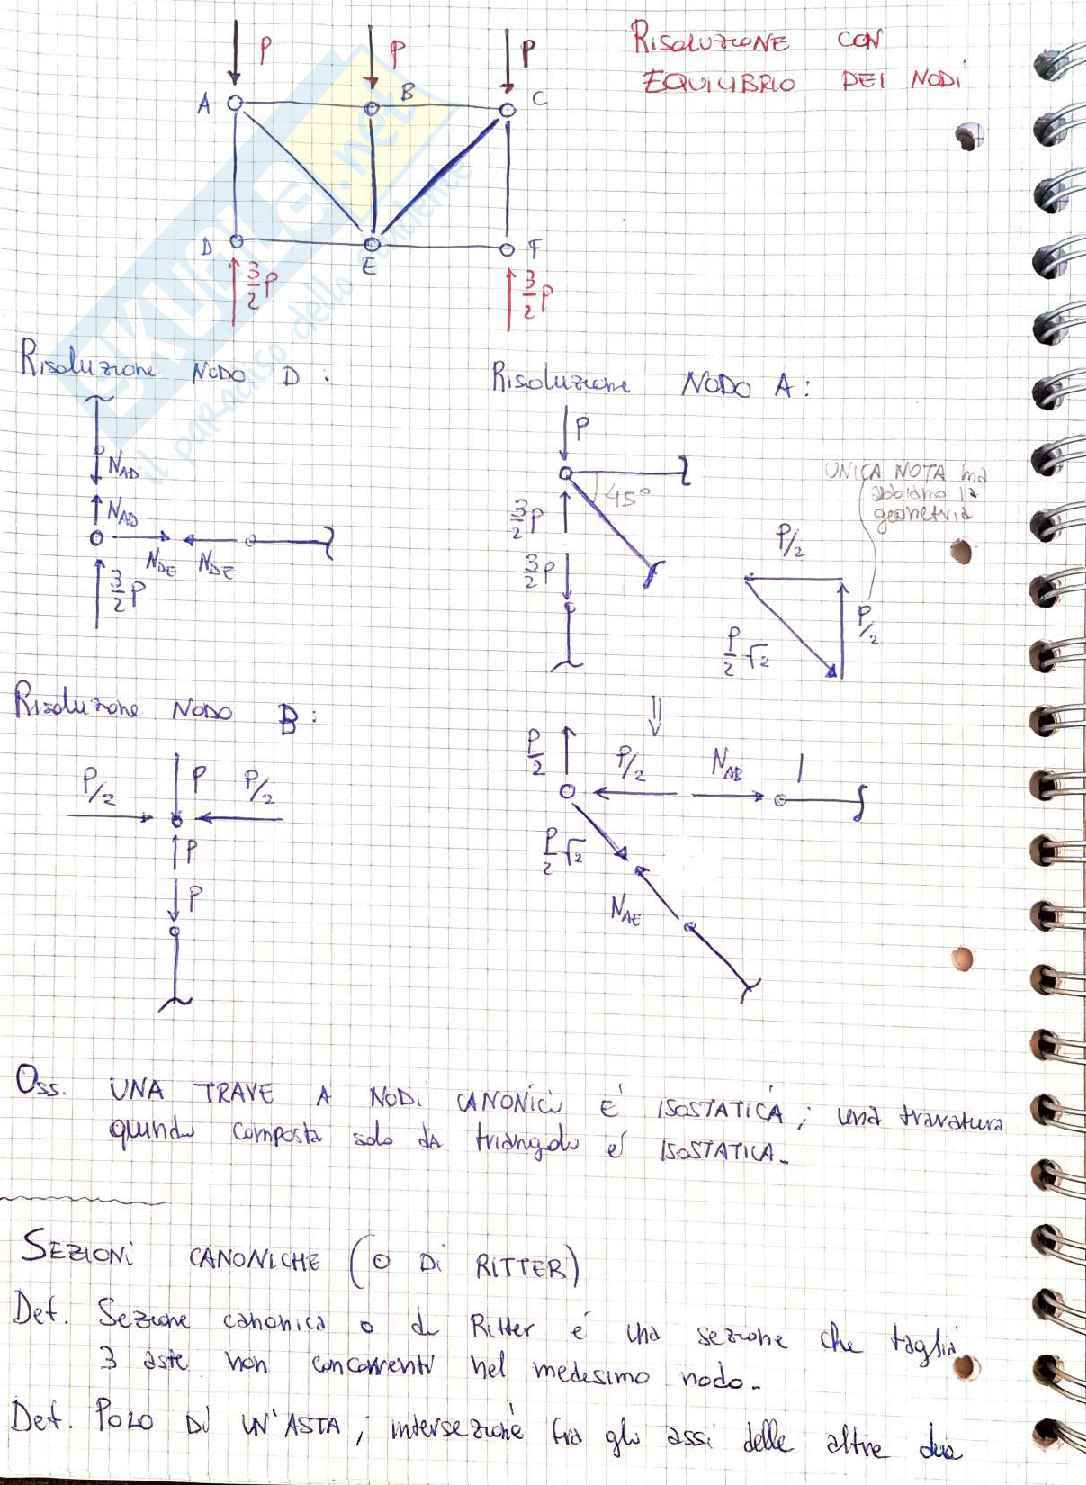 RISOLUZIONE CON
EQUILIBRIO DEI NODI
P P P
A B C
D E F
3/2 P 3/2 P
Risoluzione NODO D:
N_AD
N_AD
N_DE N_DE
3/2 P
Risoluzione NODO A:
P
45°
3/2 P
3/2 P
UNICA NOTA ma
abbiamo la
geometria
P/2
P/2
P/2 √2
Risoluzione NODO B:
P/2 P P/2
P
P
P/2 P/2 N_AB
P/2 √2
N_AE
Oss. UNA TRAVE A NODi CANONICi E' ISOSTATICA; una travatura
quindi composta solo da triangoli e' ISOSTATICA.
SEZIONI CANONICHE (O Di RITTER)
Def. Sezione canonica o di Ritter è una sezione che taglia
3 aste non concorrenti nel medesimo nodo.
Def. POLO Di UN'ASTA; intersezione fra gli assi delle altre due
SKUOLA.net
il paradiso dello studente